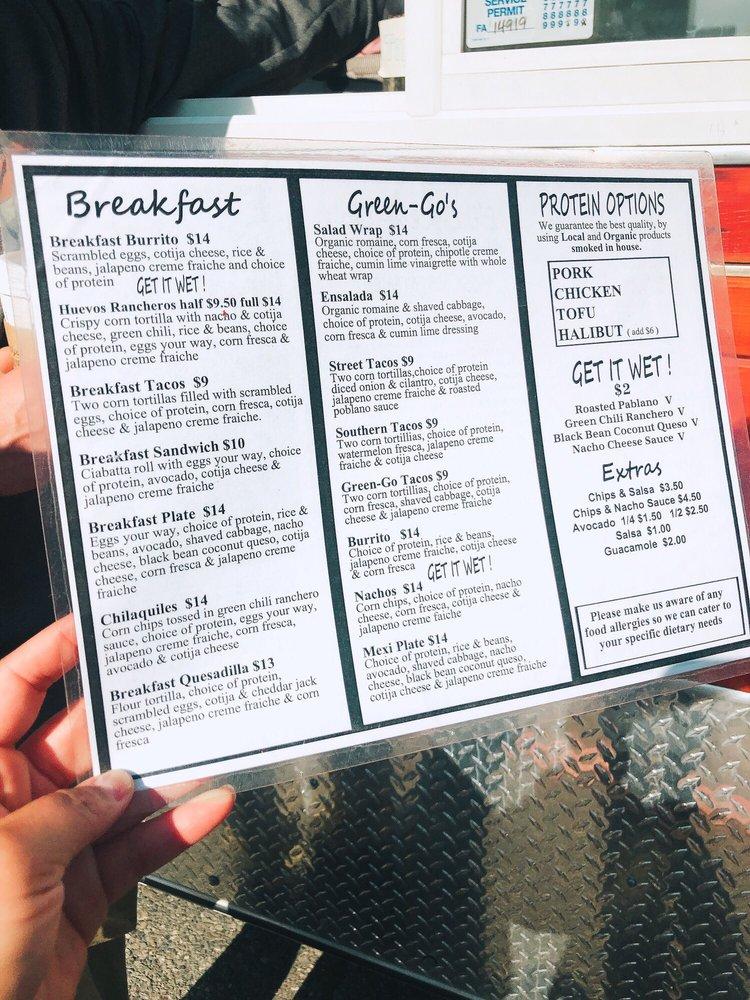 SERVICE
PERMIT
FA 14919
777777
888888
999999
Breakfast
Breakfast Burrito $14
Scrambled eggs, cotija cheese, rice &
beans, jalapeno creme fraiche and choice
of protein GET IT WET!
Huevos Rancheros half $9.50 full $14
Crispy corn tortilla with nacho & cotija
cheese, green chili, rice & beans, choice
of protein, eggs your way, corn fresca &
jalapeno creme fraiche
Breakfast Tacos $9
Two corn tortillas filled with scrambled
eggs, choice of protein, corn fresca, cotija
cheese & jalapeno creme fraiche.
Breakfast Sandwich $10
Ciabatta roll with eggs your way, choice
of protein, avocado, cotija cheese &
jalapeno creme fraiche
Breakfast Plate $14
Eggs your way, choice of protein, rice &
beans, avocado, shaved cabbage, nacho
cheese, black bean coconut queso, cotija
cheese, corn fresca & jalapeno creme
fraiche
Chilaquiles $14
Corn chips tossed in green chili ranchero
sauce, choice of protein, eggs your way,
jalapeno creme fraiche, corn fresca,
avocado & cotija cheese
Breakfast Quesadilla $13
Flour tortilla, choice of protein,
scrambled eggs, cotija & cheddar jack
cheese, jalapeno creme fraiche & corn
fresca
Green-Go's
Salad Wrap $14
Organic romaine, corn fresca, cotija
cheese, choice of protein, chipotle creme
fraiche, cumin lime vinaigrette with whole
wheat wrap
Ensalada $14
Organic romaine & shaved cabbage,
choice of protein, cotija cheese, avocado,
corn fresca & cumin lime dressing
Street Tacos $9
Two corn tortillas,choice of protein
diced onion & cilantro, cotija cheese,
jalapeno creme fraiche & roasted
poblano sauce
Southern Tacos $9
Two corn tortillias, choice of protein,
watermelon fresca, jalapeno creme
fraiche & cotija cheese
Green-Go Tacos $9
Two corn tortillias, choice of protein,
corn fresca, shaved cabbage, cotija
cheese & jalapeno creme fraiche
Burrito $14
Choice of protein, rice & beans,
jalapeno creme fraiche, cotija cheese
& corn fresca GET IT WET!
Nachos $14
Corn chips, choice of protein, nacho
cheese, corn fresca, cotija cheese &
jalapeno creme faiche
Mexi Plate $14
Choice of protein, rice & beans,
avocado, shaved cabbage, nacho
cheese, black bean coconut queso,
cotija cheese & jalapeno creme fraiche
PROTEIN OPTIONS
We guarantee the best quality, by
using Local and Organic products
smoked in house.
PORK
CHICKEN
TOFU
HALIBUT ( add $6 )
GET IT WET!
$2
Roasted Pablano V
Green Chili Ranchero V
Black Bean Coconut Queso V
Nacho Cheese Sauce V
Extras
Chips & Salsa $3.50
Chips & Nacho Sauce $4.50
Avocado 1/4 $1.50 1/2 $2.50
Salsa $1.00
Guacamole $2.00
Please make us aware of any
food allergies so we can cater to
your specific dietary needs